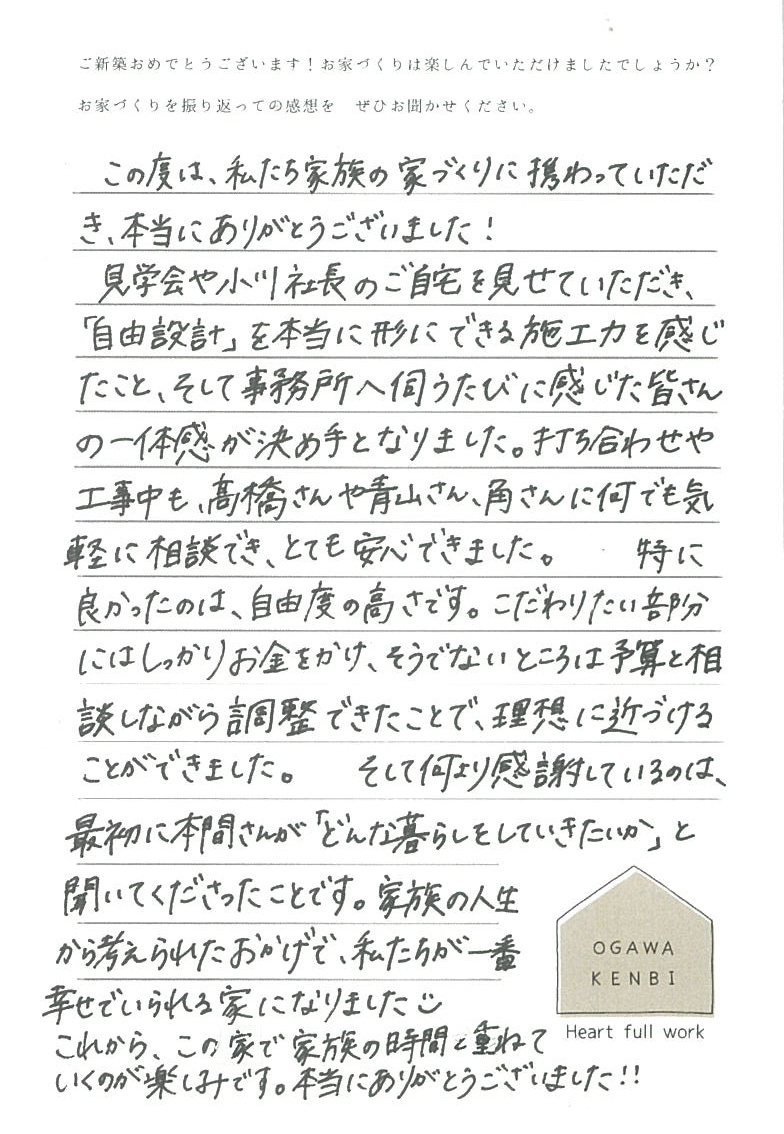 ご新築おめでとうございます！お家づくりは楽しんでいただけましたでしょうか？
お家づくりを振り返っての感想を　ぜひお聞かせください。
この度は、私たち家族の家づくりに携わっていただ
き、本当にありがとうございました！
見学会や小川社長のご自宅を見せていただき、
「自由設計」を本当に形にできる施工力を感じ
たこと、そして事務所へ伺うたびに感じた皆さん
の一体感が決め手となりました。打ち合わせや
工事中も、髙橋さんや青山さん、角さんに何でも気
軽に相談でき、とても安心できました。　　特に
良かったのは、自由度の高さです。こだわりたい部分
にはしっかりお金をかけ、そうでないところは予算と相
談しながら調整できたことで、理想に近づける
ことができました。　　そして何より感謝しているのは、
最初に本間さんが「どんな暮らしをしていきたいか」と
聞いてくださったことです。家族の人生
から考えられたおかげで、私たちが一番
幸せでいられる家になりました☺
これから、この家で家族の時間を重ねて
いくのが楽しみです。本当にありがとうございました!!
OGAWA
KENBI
Heart full work